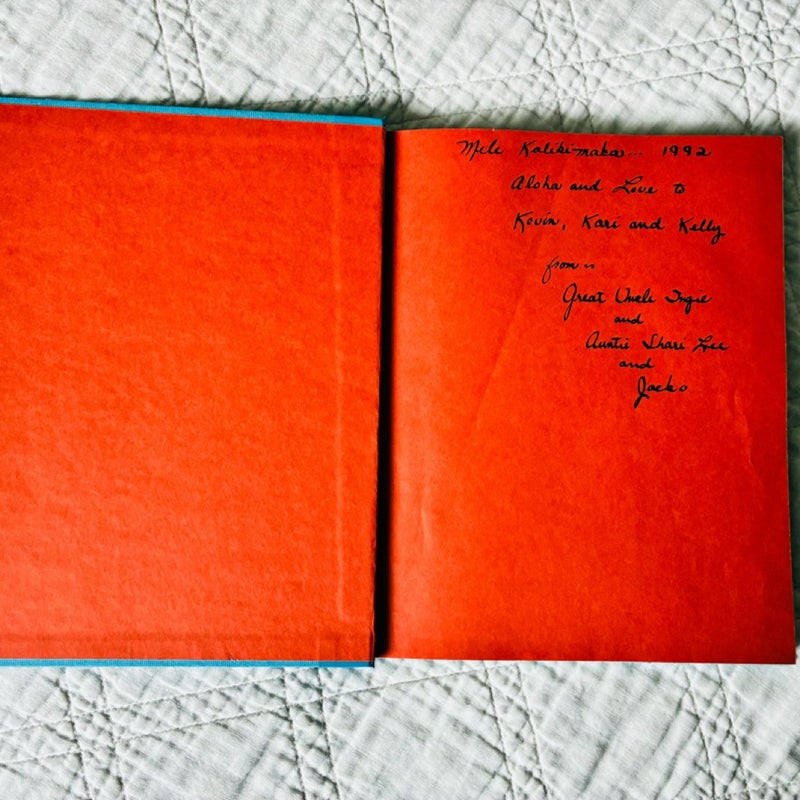 Mele Kalikimaka... 1992
Aloha and Love to
Kevin, Kari and Kelly
from -
Great Uncle Ingie
and
Auntie Shari Lee
and
Jacko